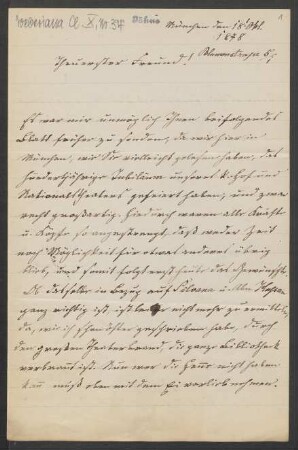 München den 18 Okt.
1878
Blumenstrasse 5/1
Theuerster Freund!
Es war mir unmöglich Ihnen beifolgendes
Blatt früher zu senden, da wir hier in
München, wie Sie vielleicht gelesen haben, das
hundertjährige Jubiläum unseres k. Hof und
Nationaltheaters gefeiert haben, und zwar
recht großartig. Hiedurch waren alle Kräfte
u. Köpfe so angestrengt, daß weder Zeit
noch Möglichkeit für etwas anderes übrig
blieb, und somit folgt erst heute das Gewünschte.
Ob dasselbe in Bezug auf
ganz richtig ist ist leider nicht mehr zu ermitteln,
da, wie ich schon öfter geschrieben habe, durch
den großen Theaterbrand, die ganze Bibliothek
verbrannt ist. Nun wer die Henne nicht haben
kann muß eben mit dem Ei vorlieb nehmen.